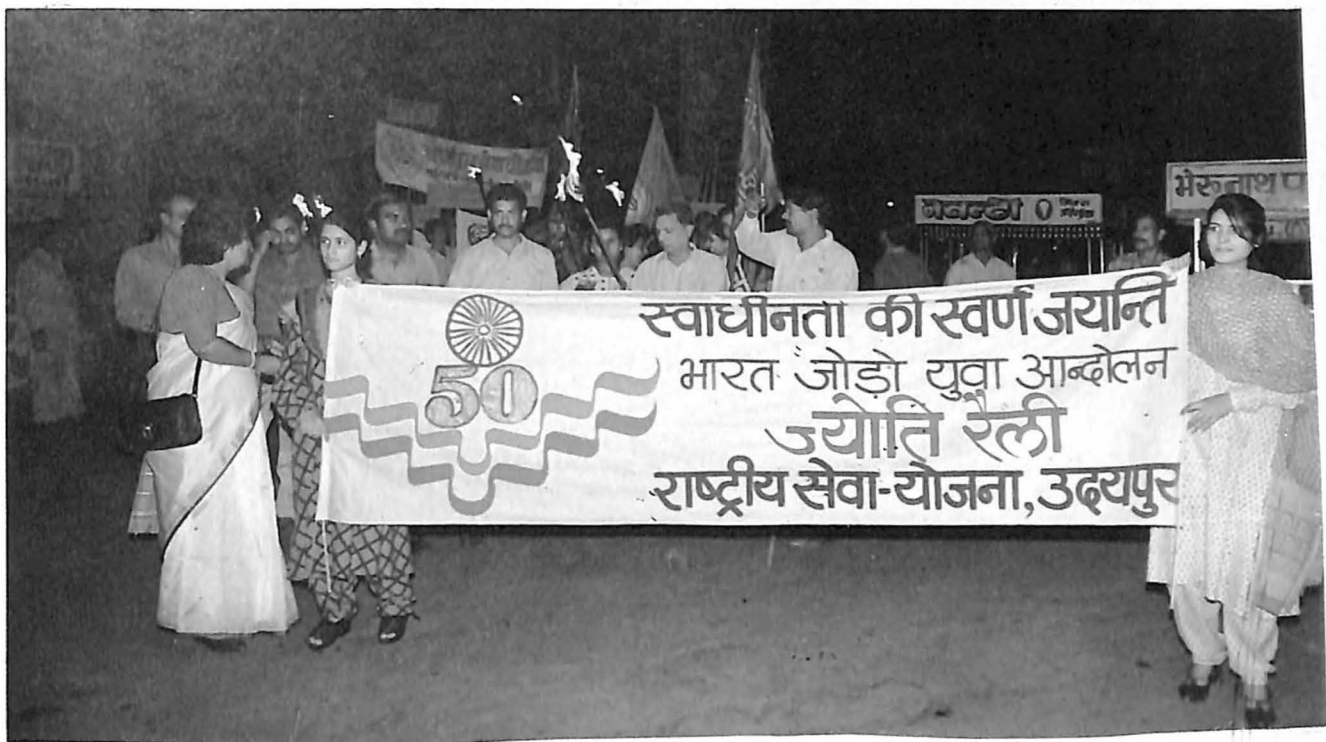 स्वाधीनता की स्वर्ण जयन्ति
50
भारत जोड़ो युवा आन्दोलन
ज्योति रैली
राष्ट्रीय सेवा-योजना, उदयपुर
भेरूनाथ